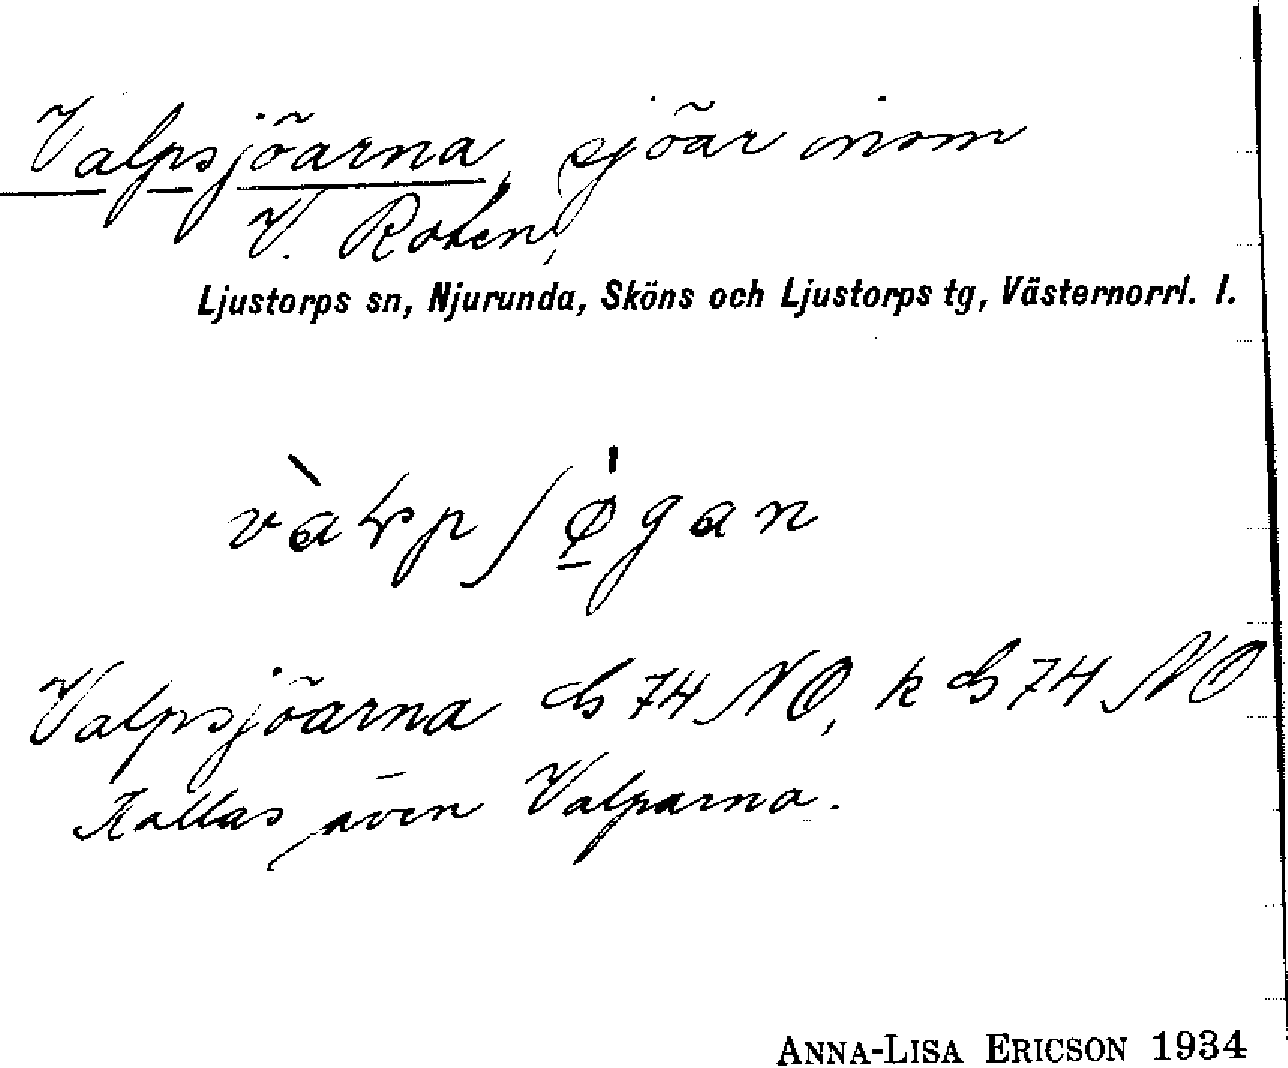 Valpsjöarna, sjöar inom
V. Roten,
Ljustorps sn, Njurunda, Sköns och Ljustorps tg, Västernorrl. l.
Valpsjöarna 74 NO, k 74 NO
Kallas även Valparna.
ANNA-LISA ERICSON 1934